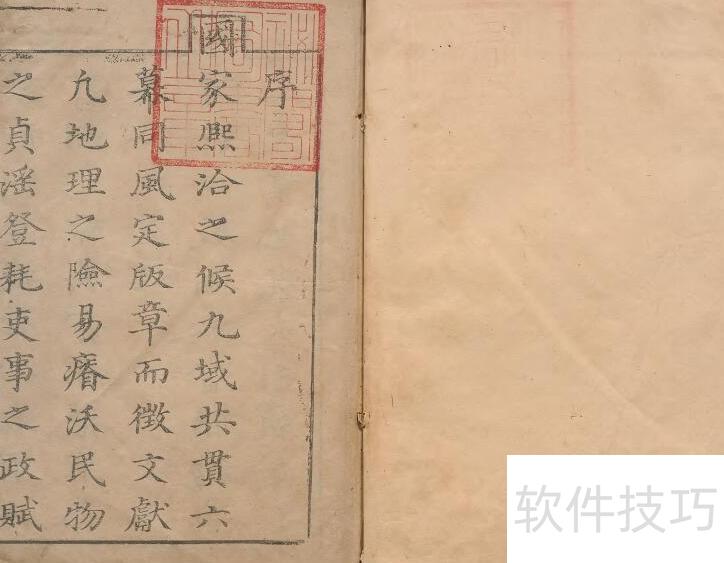 序
國家熙洽之候九域共貫六
幕同風定版章而徵文獻
凢地理之險易瘠沃民物
之貞滛登耗吏事之政賦
软件技巧